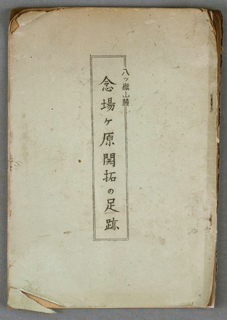 八ヶ嶽山麓
念場ヶ原開拓の足跡